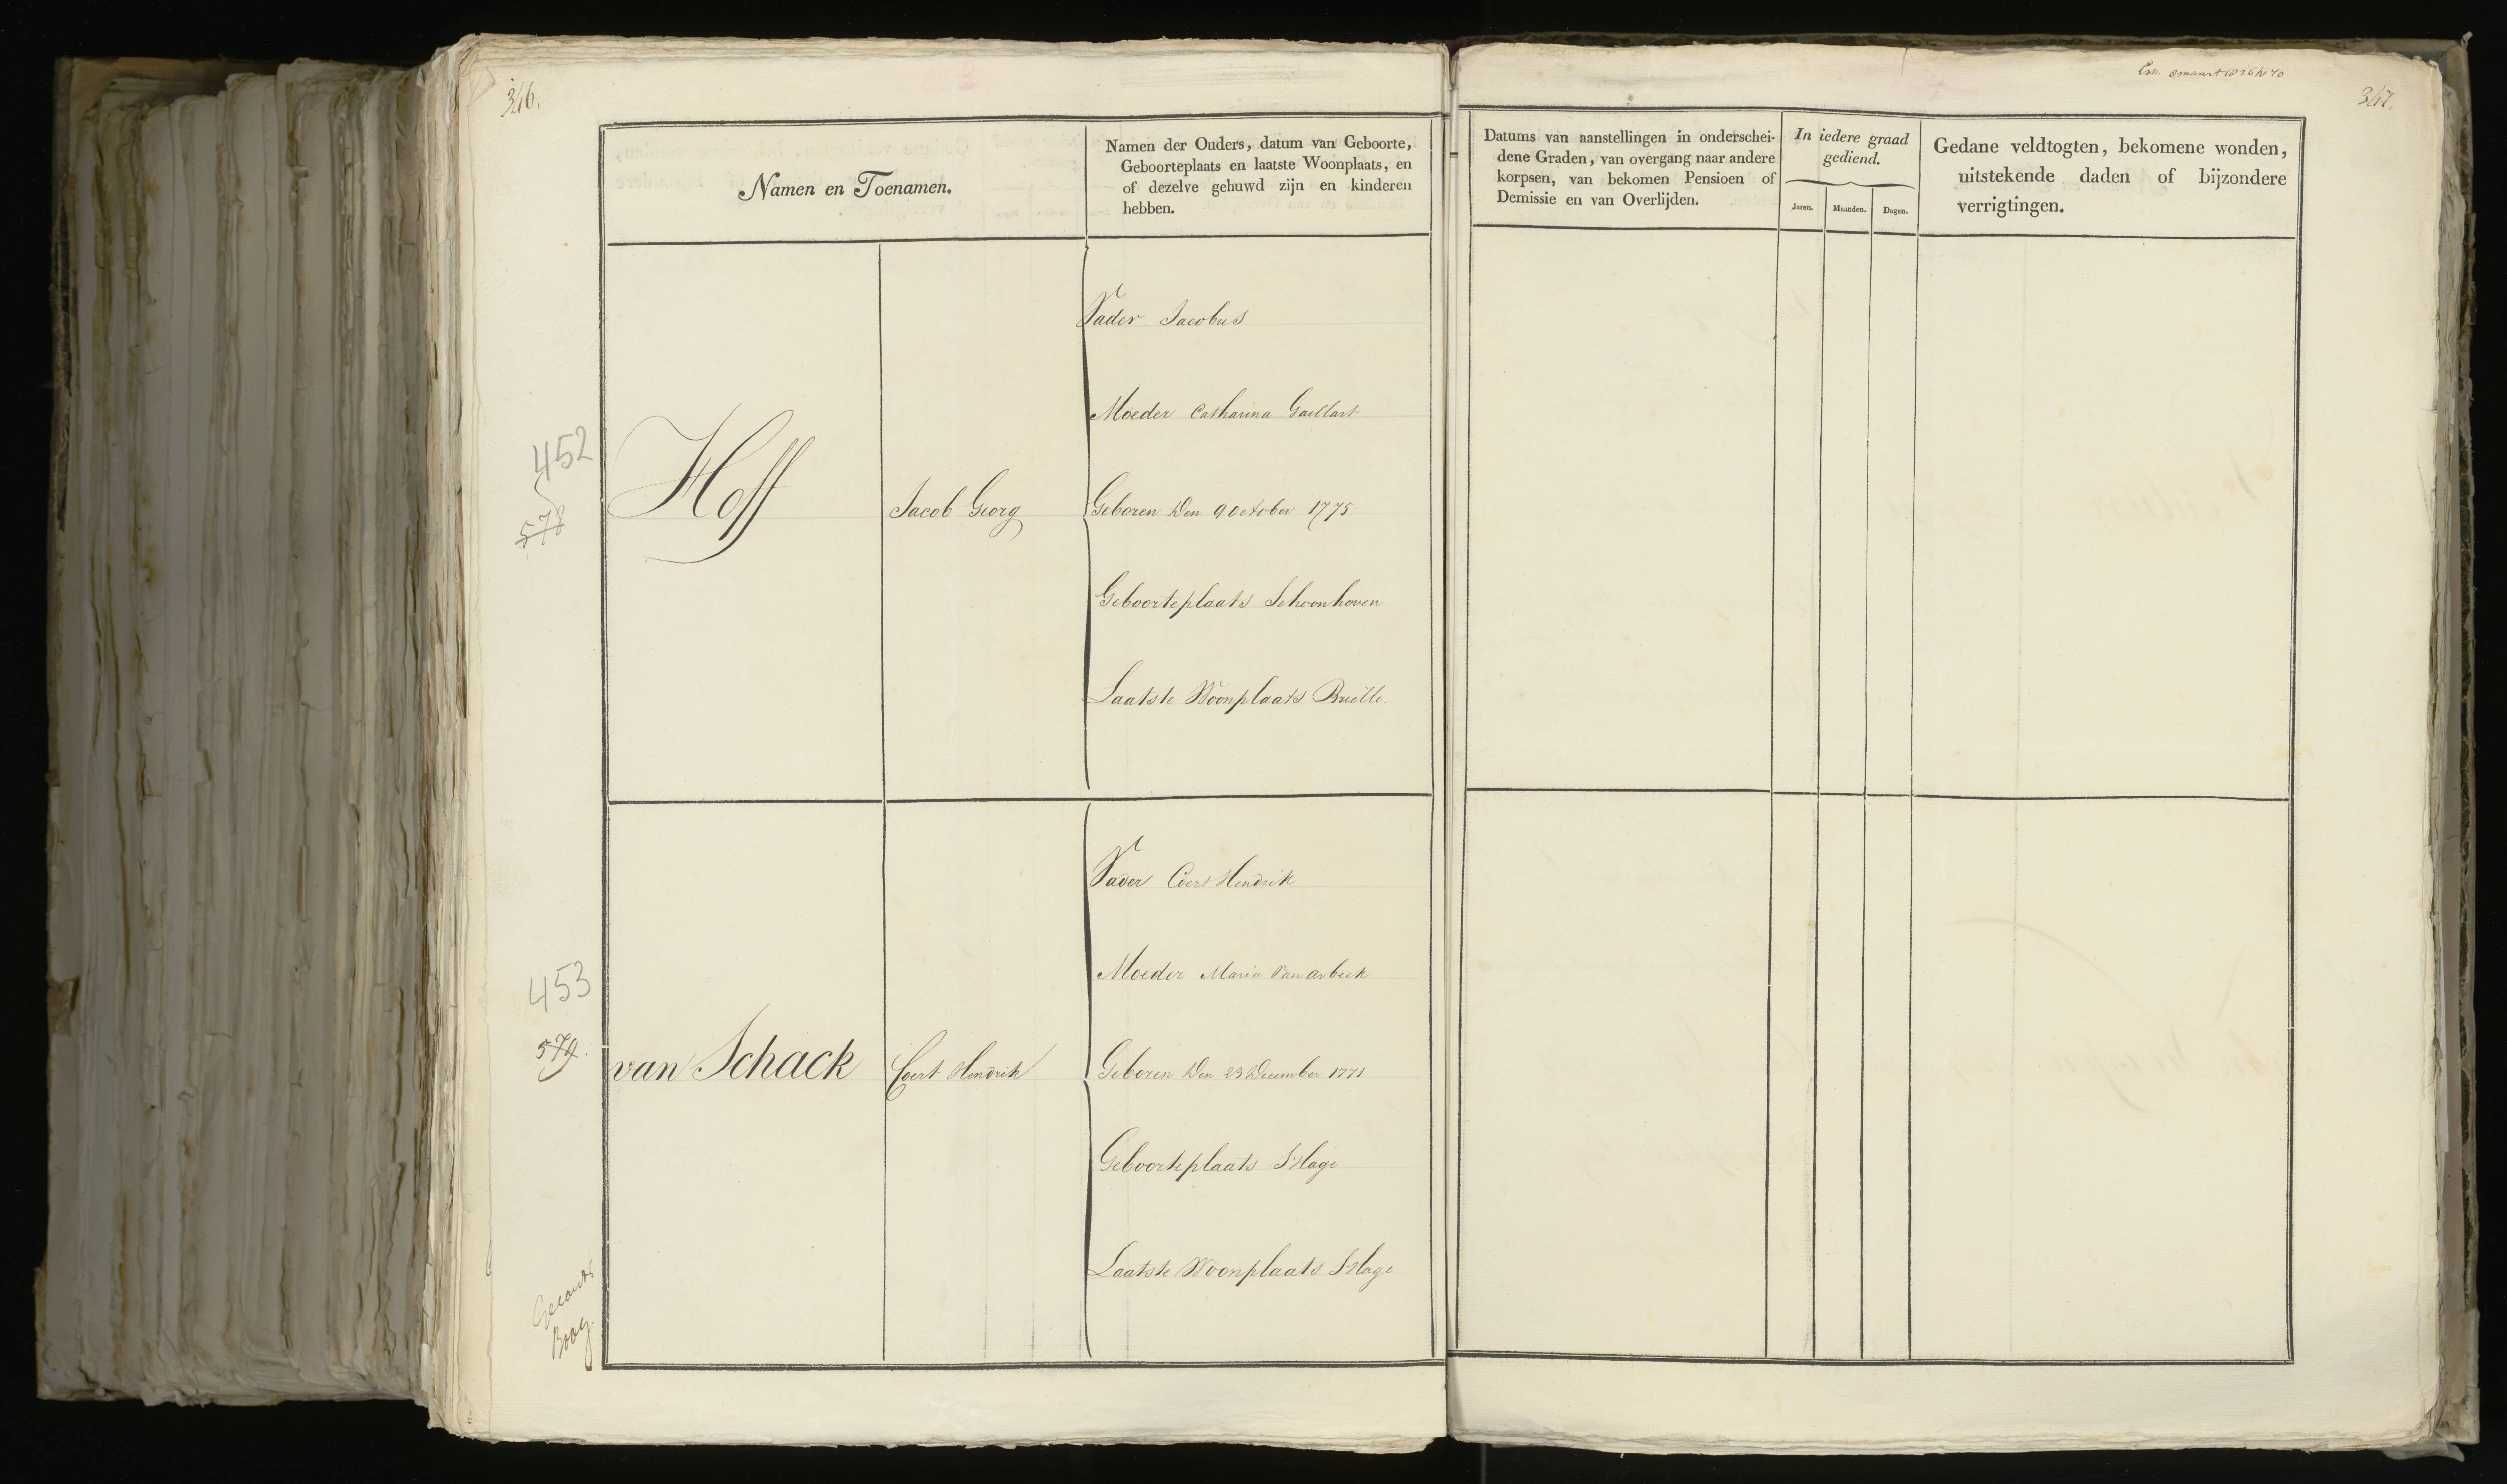 346.
Namen en Toenamen.
Namen der Ouders, datum van Geboorte,
Geboorteplaats en laatste Woonplaats, en
of dezelve gehuwd zijn en kinderen
hebben.
452
578
Hoff
Jacob Georg
Vader Jacobus
Moeder Catharina Gaillart
Geboren Den 9 October 1775
Geboorteplaats Schoonhoven
Laatste Woonplaats Brielle.
453
579.
van Schack
Coert Hendrik
Vader Coert Hendrik
Moeder Maria van Asbeck
Geboren Den 23 December 1771
Geboorteplaats S'Hage
Laatste Woonplaats S'Hage
347.
Datums van aanstellingen in onderschei-
dene Graden, van overgang naar andere
korpsen, van bekomen Pensioen of
Demissie en van Overlijden.
In iedere graad
gediend.
Jaren.
Maanden.
Dagen.
Gedane veldtogten, bekomene wonden,
uitstekende daden of bijzondere
verrigtingen.